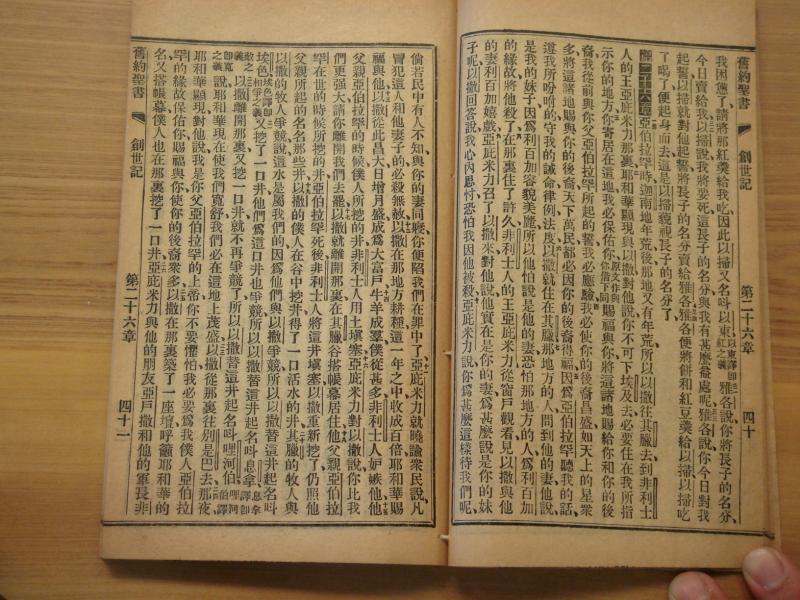 舊約聖書 創世記 第二十六章 四十
我困憊了請將那紅羹給我吃因此以掃又名呌以東以東譯卽紅之義雅各說你將長子的名分、
今日賣給我以掃說我將要死這長子的名分與我有甚麽益處呢雅各說你今日對我
起誓以掃就對他起誓將長子的名分賣給雅各雅各便將餅和紅豆羹給以掃以掃吃
了喝了便起身而去這是以掃藐視長子的名分了
第二十六章亞伯拉罕時迦南地年荒後那地又有年荒所以以撒往其臘去到非利士
人的王亞庇米力那裏耶和華顯現與以撒對他說你不可下埃及去必要住在我所指
示你的地方你寄居在這地我必保佑你原文作與你偕下同賜福與你將這諸地賜給你和你的後
裔我從前與你父亞伯拉罕所起的誓我必應驗我必使你的後裔昌盛如天上的星衆
多將這諸地賜與你的後裔天下萬民都必因你的後裔得福因爲亞伯拉罕聽我的話、
遵我所吩咐的守我的誡命律例法度以撒就住在其臘那地方的人問到他的妻他說
是我的妹子因爲利百加容貌美麗所以他怕說是他的妻恐怕那地方的人爲利百加
的緣故將他殺了在那裏住了許久非利士人的王亞庇米力從窗戶觀看見以撒與他
的妻利百加嬉戲亞庇米力召了以撒來對他說他實在是你的妻爲甚麽說是你的妹
子呢以撒回答說我心內思忖恐怕我因他被殺亞庇米力說你爲甚麽這樣待我們呢、
倘若民中有人不知與你的妻同寢你便陷我們在罪中了亞庇米力就曉諭衆民說凡
冒犯這人和他妻子的必殺無赦以撒在那地方耕種這一年之中收成百倍耶和華賜
福與他以撒從此昌大日增月盛成爲大富戶牛羊成羣僕從甚多非利士人妒嫉他他
父亞伯拉罕的時候僕人所挖的井非利士人用土塡塞亞庇米力對以撒說你比我
們更强大請你離開我們去罷以撒就離開那裏在其臘谷搭帳幕居住他父親亞伯拉
罕在世的時候所挖的井亞伯拉罕死後非利士人將這井塡塞以撒重新挖了仍照他
父親所起的名名那些井以撒的僕人在谷中挖井得了一口活水的井其臘的牧人與
以撒的牧人爭競說這水是屬我們的因爲他們與以撒爭競所以以撒替這井起名呌
埃色埃色譯卽相爭之義又挖了一口井他們爲這口井也爭競所以以撒替這井起名呌息拿息拿譯卽
敵之義以撒離開那裏又挖了一口井就不再爭競了所以以撒替這井起名呌哩河伯哩河伯譯
卽寬之義說耶和華現在使我們寬舒我們必在這地上茂盛以撒從那裏往別是巴去那夜
耶和華顯現對他說我是你父亞伯拉罕的上帝你不要懼怕我必要爲我僕人亞伯拉
罕的緣故保佑你賜福與你使你的後裔衆多以撒在那裏築了一座壇呼籲耶和華的
名又搭帳幕僕人也在那裏挖了一口井亞庇米力與他的朋友亞戶撒和他的軍長非
舊約聖書 創世記 第二十六章 四十一